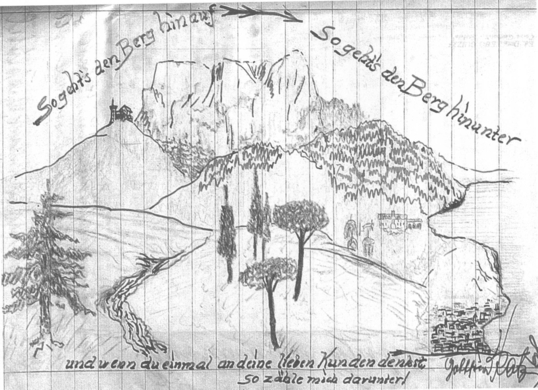 So geht's den Berg hinauf
So geht's den Berg hinunter
und wenn du einmal an deine lieben Kunden denkst
So zähle mich darunter!